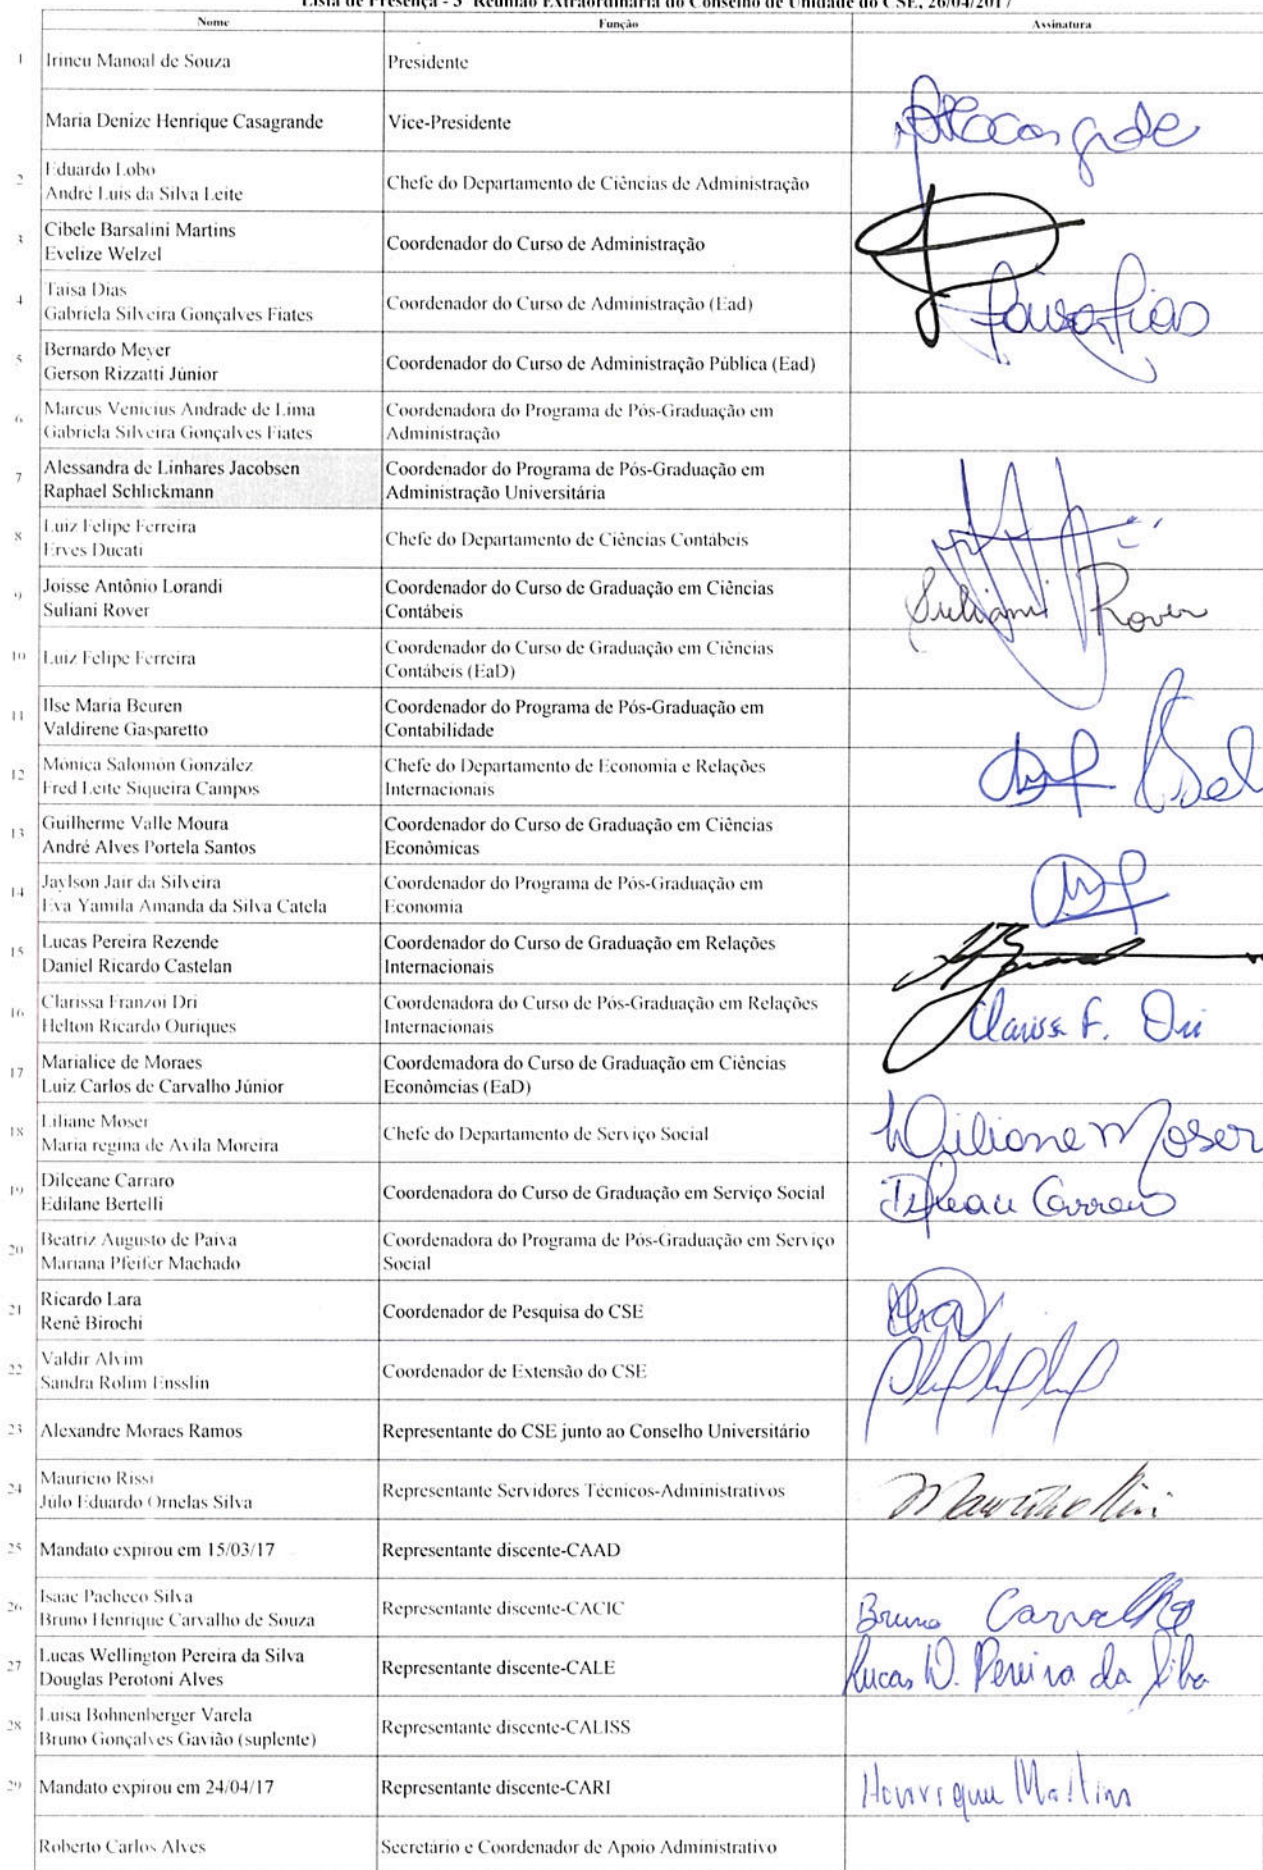 Lista de Presença - 3ª Reunião Extraordinária do Conselho de Unidade do CSE, 26/04/2017
Nome Função Assinatura
1 Irineu Manoal de Souza Presidente
Maria Denize Henrique Casagrande Vice-Presidente
2 Eduardo Lobo
André Luis da Silva Leite
Chefe do Departamento de Ciências de Administração
3 Cibele Barsalini Martins
Evelize Welzel
Coordenador do Curso de Administração
4 Taisa Dias
Gabriela Silveira Gonçalves Fiates
Coordenador do Curso de Administração (Ead)
Taisa Dias
5 Bernardo Meyer
Gerson Rizzatti Júnior
Coordenador do Curso de Administração Pública (Ead)
6 Marcus Venicius Andrade de Lima
Gabriela Silveira Gonçalves Fiates
Coordenadora do Programa de Pós-Graduação em
Administração
7 Alessandra de Linhares Jacobsen
Raphael Schlickmann
Coordenador do Programa de Pós-Graduação em
Administração Universitária
8 Luiz Felipe Ferreira
Erves Ducati
Chefe do Departamento de Ciências Contábeis
9 Joisse Antônio Lorandi
Suliani Rover
Coordenador do Curso de Graduação em Ciências
Contábeis
Suliani Rover
10 Luiz Felipe Ferreira
Coordenador do Curso de Graduação em Ciências
Contábeis (EaD)
11 Ilse Maria Beuren
Valdirene Gasparetto
Coordenador do Programa de Pós-Graduação em
Contabilidade
12 Mónica Salomón González
Fred Leite Siqueira Campos
Chefe do Departamento de Economia e Relações
Internacionais
13 Guilherme Valle Moura
André Alves Portela Santos
Coordenador do Curso de Graduação em Ciências
Econômicas
14 Jaylson Jair da Silveira
Eva Yamila Amanda da Silva Catela
Coordenador do Programa de Pós-Graduação em
Economia
15 Lucas Pereira Rezende
Daniel Ricardo Castelan
Coordenador do Curso de Graduação em Relações
Internacionais
16 Clarissa Franzoi Dri
Helton Ricardo Ouriques
Coordenadora do Curso de Pós-Graduação em Relações
Internacionais
Clarissa F. Dri
17 Marialice de Moraes
Luiz Carlos de Carvalho Júnior
Coordemadora do Curso de Graduação em Ciências
Econômcias (EaD)
18 Liliane Moser
Maria regina de Avila Moreira
Chefe do Departamento de Serviço Social
Liliane Moser
19 Dilceane Carraro
Edilane Bertelli
Coordenadora do Curso de Graduação em Serviço Social
Dilceane Carraro
20 Beatriz Augusto de Paiva
Mariana Pfeifer Machado
Coordenadora do Programa de Pós-Graduação em Serviço
Social
21 Ricardo Lara
Renê Birochi
Coordenador de Pesquisa do CSE
22 Valdir Alvim
Sandra Rolim Ensslin
Coordenador de Extensão do CSE
23 Alexandre Moraes Ramos Representante do CSE junto ao Conselho Universitário
24 Mauricio Rissi
Júlo Eduardo Ornelas Silva
Representante Servidores Técnicos-Administrativos
25 Mandato expirou em 15/03/17 Representante discente-CAAD
26 Isaac Pacheco Silva
Bruno Henrique Carvalho de Souza
Representante discente-CACIC
Bruno Carvalho
27 Lucas Wellington Pereira da Silva
Douglas Perotoni Alves
Representante discente-CALE
Lucas W. Pereira da Silva
28 Luisa Bohnenberger Varela
Bruno Gonçalves Gavião (suplente)
Representante discente-CALISS
29 Mandato expirou em 24/04/17 Representante discente-CARI
Henrique Martins
Roberto Carlos Alves Secretário e Coordenador de Apoio Administrativo